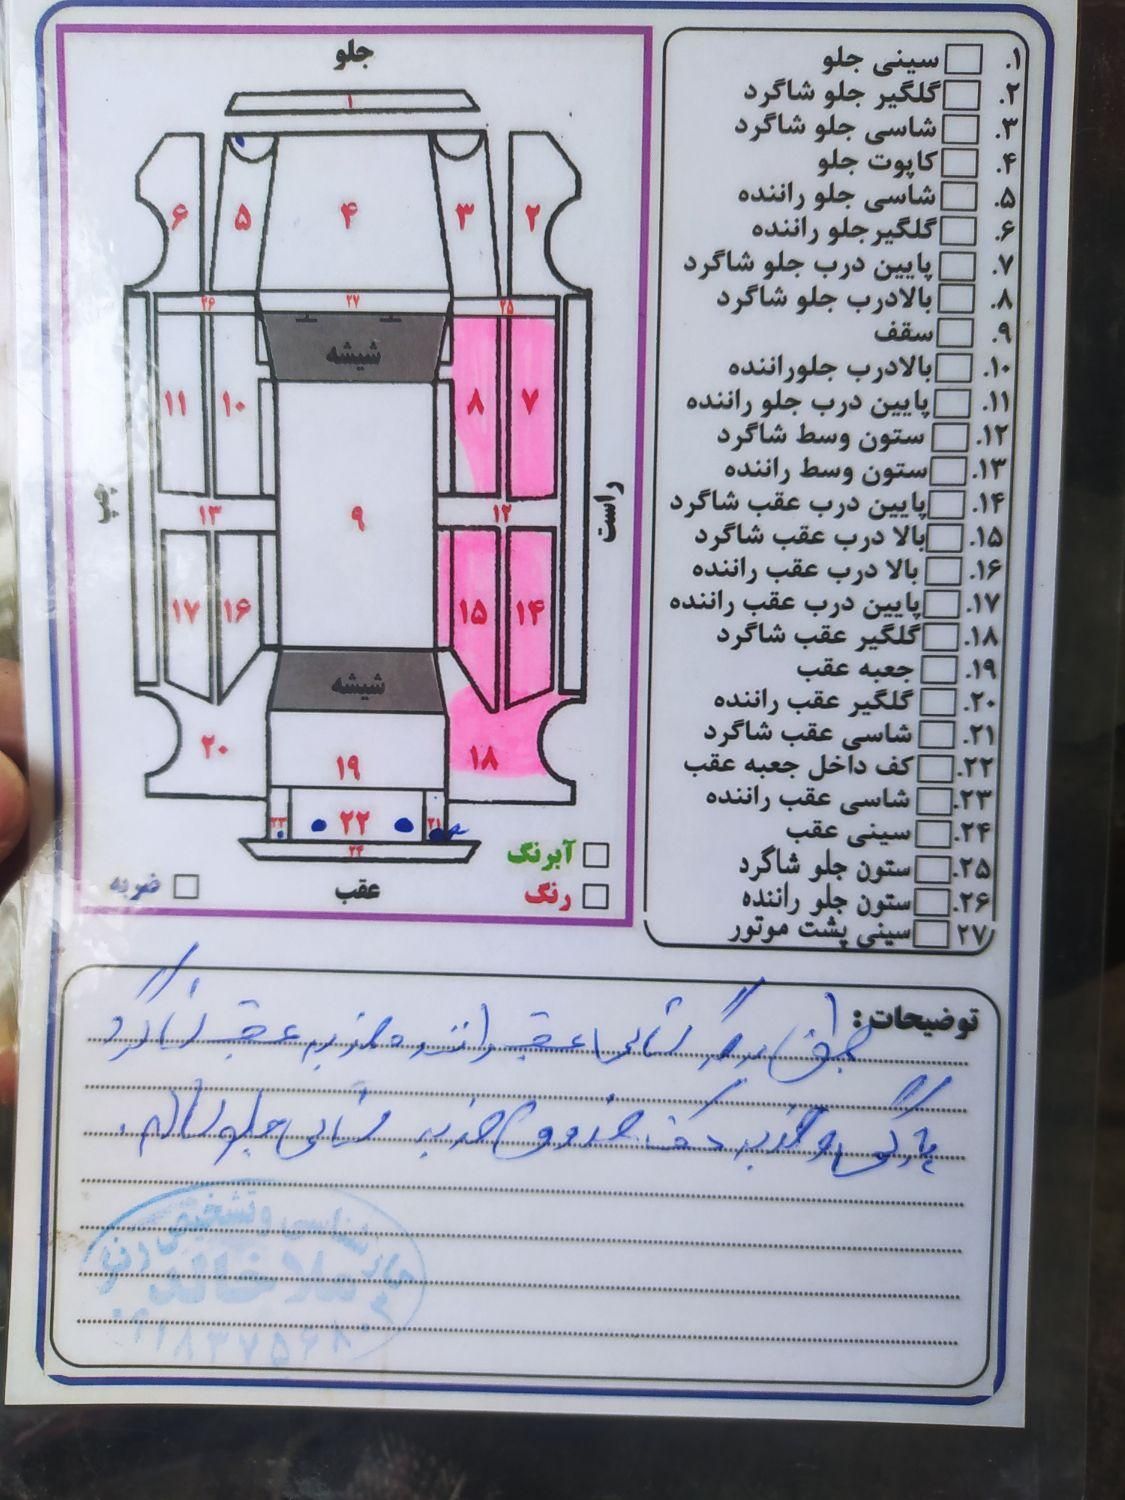 جلو
۱
۶
۵
۴
۳
۲
۲۶
۲۷
۲۵
شیشه
۱۱
۱۰
۸
۷
چپ
راست
۱۳
۹
۱۲
۱۷
۱۶
۱۵
۱۴
شیشه
۲۰
۱۹
۱۸
۲۳
۲۲
۲۱
۲۴
آبرنگ
رنگ
ضربه
عقب
۱. سینی جلو
۲. گلگیر جلو شاگرد
۳. شاسی جلو شاگرد
۴. کاپوت جلو
۵. شاسی جلو راننده
۶. گلگیرجلو راننده
۷. پایین درب جلو شاگرد
۸. بالادرب جلو شاگرد
۹. سقف
۱۰. بالادرب جلوراننده
۱۱. پایین درب جلو راننده
۱۲. ستون وسط شاگرد
۱۳. ستون وسط راننده
۱۴. پایین درب عقب شاگرد
۱۵. بالا درب عقب شاگرد
۱۶. بالا درب عقب راننده
۱۷. پایین درب عقب راننده
۱۸. گلگیر عقب شاگرد
۱۹. جعبه عقب
۲۰. گلگیر عقب راننده
۲۱. شاسی عقب شاگرد
۲۲. کف داخل جعبه عقب
۲۳. شاسی عقب راننده
۲۴. سینی عقب
۲۵. ستون جلو شاگرد
۲۶. ستون جلو راننده
۲۷ سینی پشت موتور
توضیحات:
عقب راننده ضربه عقب شاگرد
ضربه کف صندوق ضربه جلو سالم.
کارشناسی و تشخیص رنگ
ملا خالد